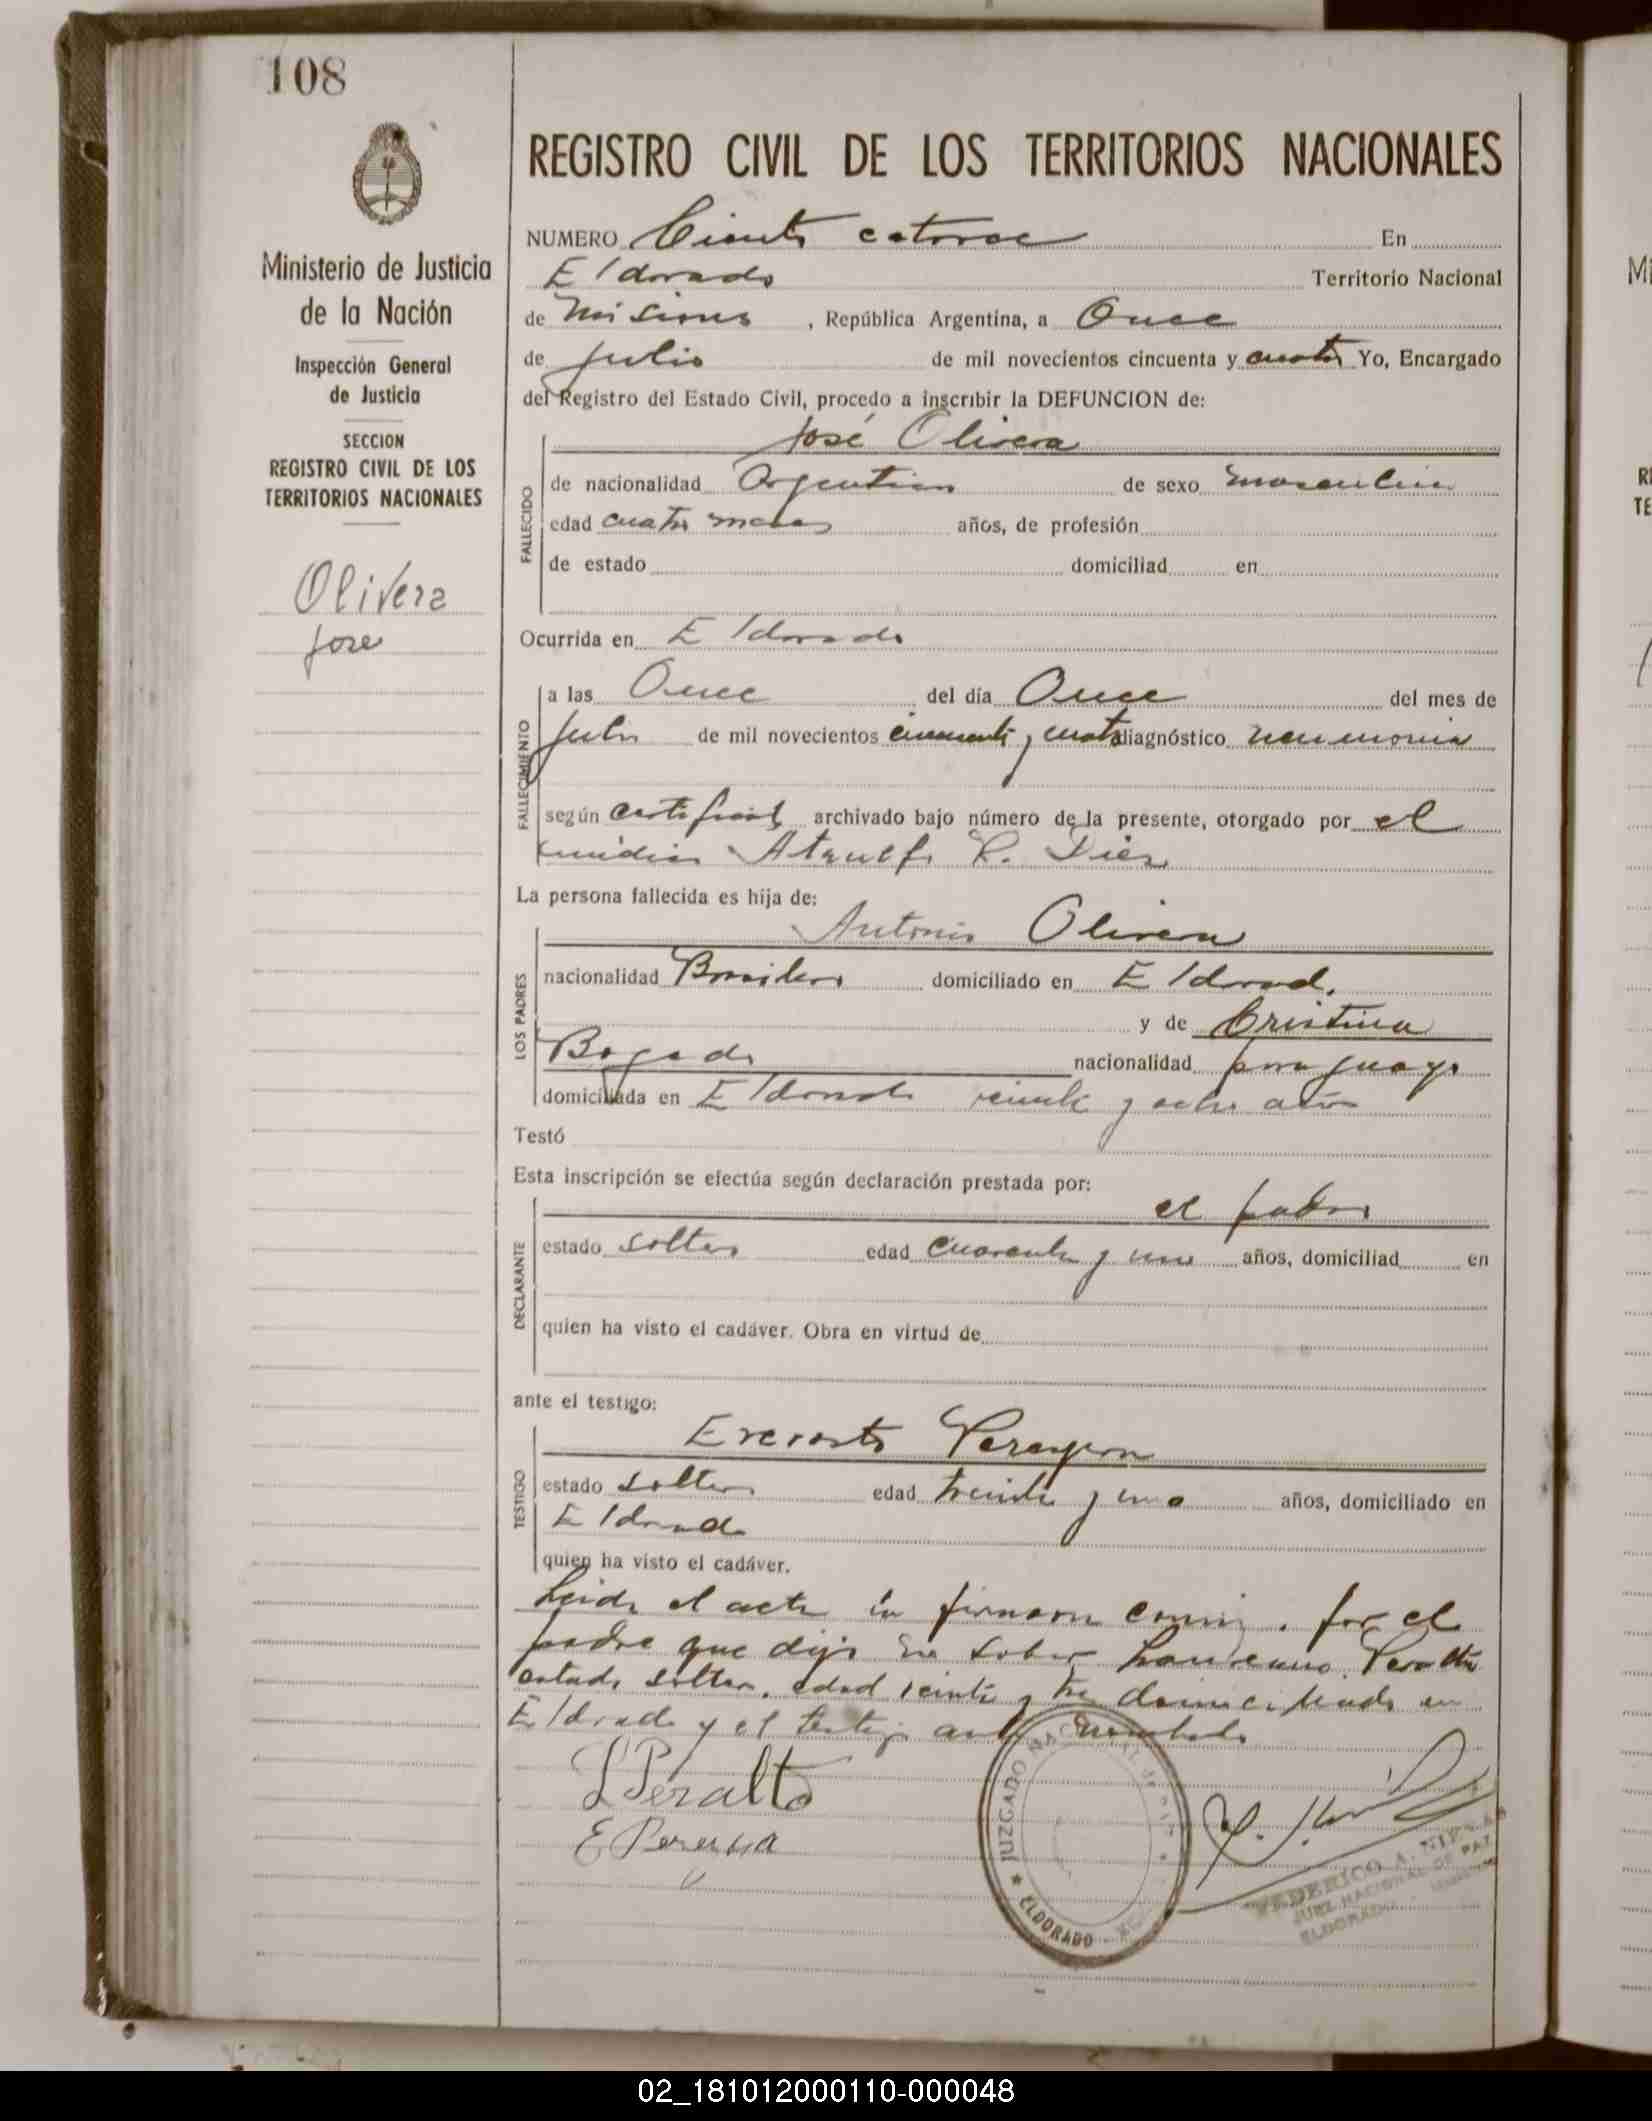 108
Ministerio de Justicia
de la Nación
Inspección General
de Justicia
SECCION
REGISTRO CIVIL DE LOS
TERRITORIOS NACIONALES
Olivera
Jose
REGISTRO CIVIL DE LOS TERRITORIOS NACIONALES
NUMERO Ciento catorce En
Eldorado Territorio Nacional
de Misiones , República Argentina, a Once
de Julio de mil novecientos cincuenta y cuatro Yo, Encargado
del Registro del Estado Civil, procedo a inscribir la DEFUNCION de:
José Olivera
FALLECIDO
de nacionalidad Argentino de sexo masculino
edad cuatro meses años, de profesión
de estado domiciliad en
Ocurrida en Eldorado
FALLECIMIENTO
a las Once del día Once del mes de
Julio de mil novecientos cincuenta y cuatro diagnóstico neumonia
según certificado archivado bajo número de la presente, otorgado por el
médico Ataulfo Diez
La persona fallecida es hija de:
Antonio Olivera
LOS PADRES
nacionalidad Brasilero domiciliado en Eldorado
y de Cristina
Bogado nacionalidad paraguaya
domiciliada en Eldorado veinte y ocho años
Testó
Esta inscripción se efectúa según declaración prestada por:
el padre
DECLARANTE
estado soltero edad cuarenta y uno años, domiciliad en
quien ha visto el cadáver. Obra en virtud de
ante el testigo:
Evaristo Pereyra
TESTIGO
estado soltero edad treinta y uno años, domiciliado en
Eldorado
quien ha visto el cadáver.
Leida el acta la firmaron conmigo. por el
padre que dijo no saber Laureano Peralta
estado soltero, edad veinte y tres domiciliado en
Eldorado y el testigo ante nombrado
L Peralta
E Pereyra
JUZGADO NACIONAL DE PAZ
★ ELDORADO
FEDERICO A.
JUEZ NACIONAL DE PAZ
ELDORADO
02_181012000110-000048